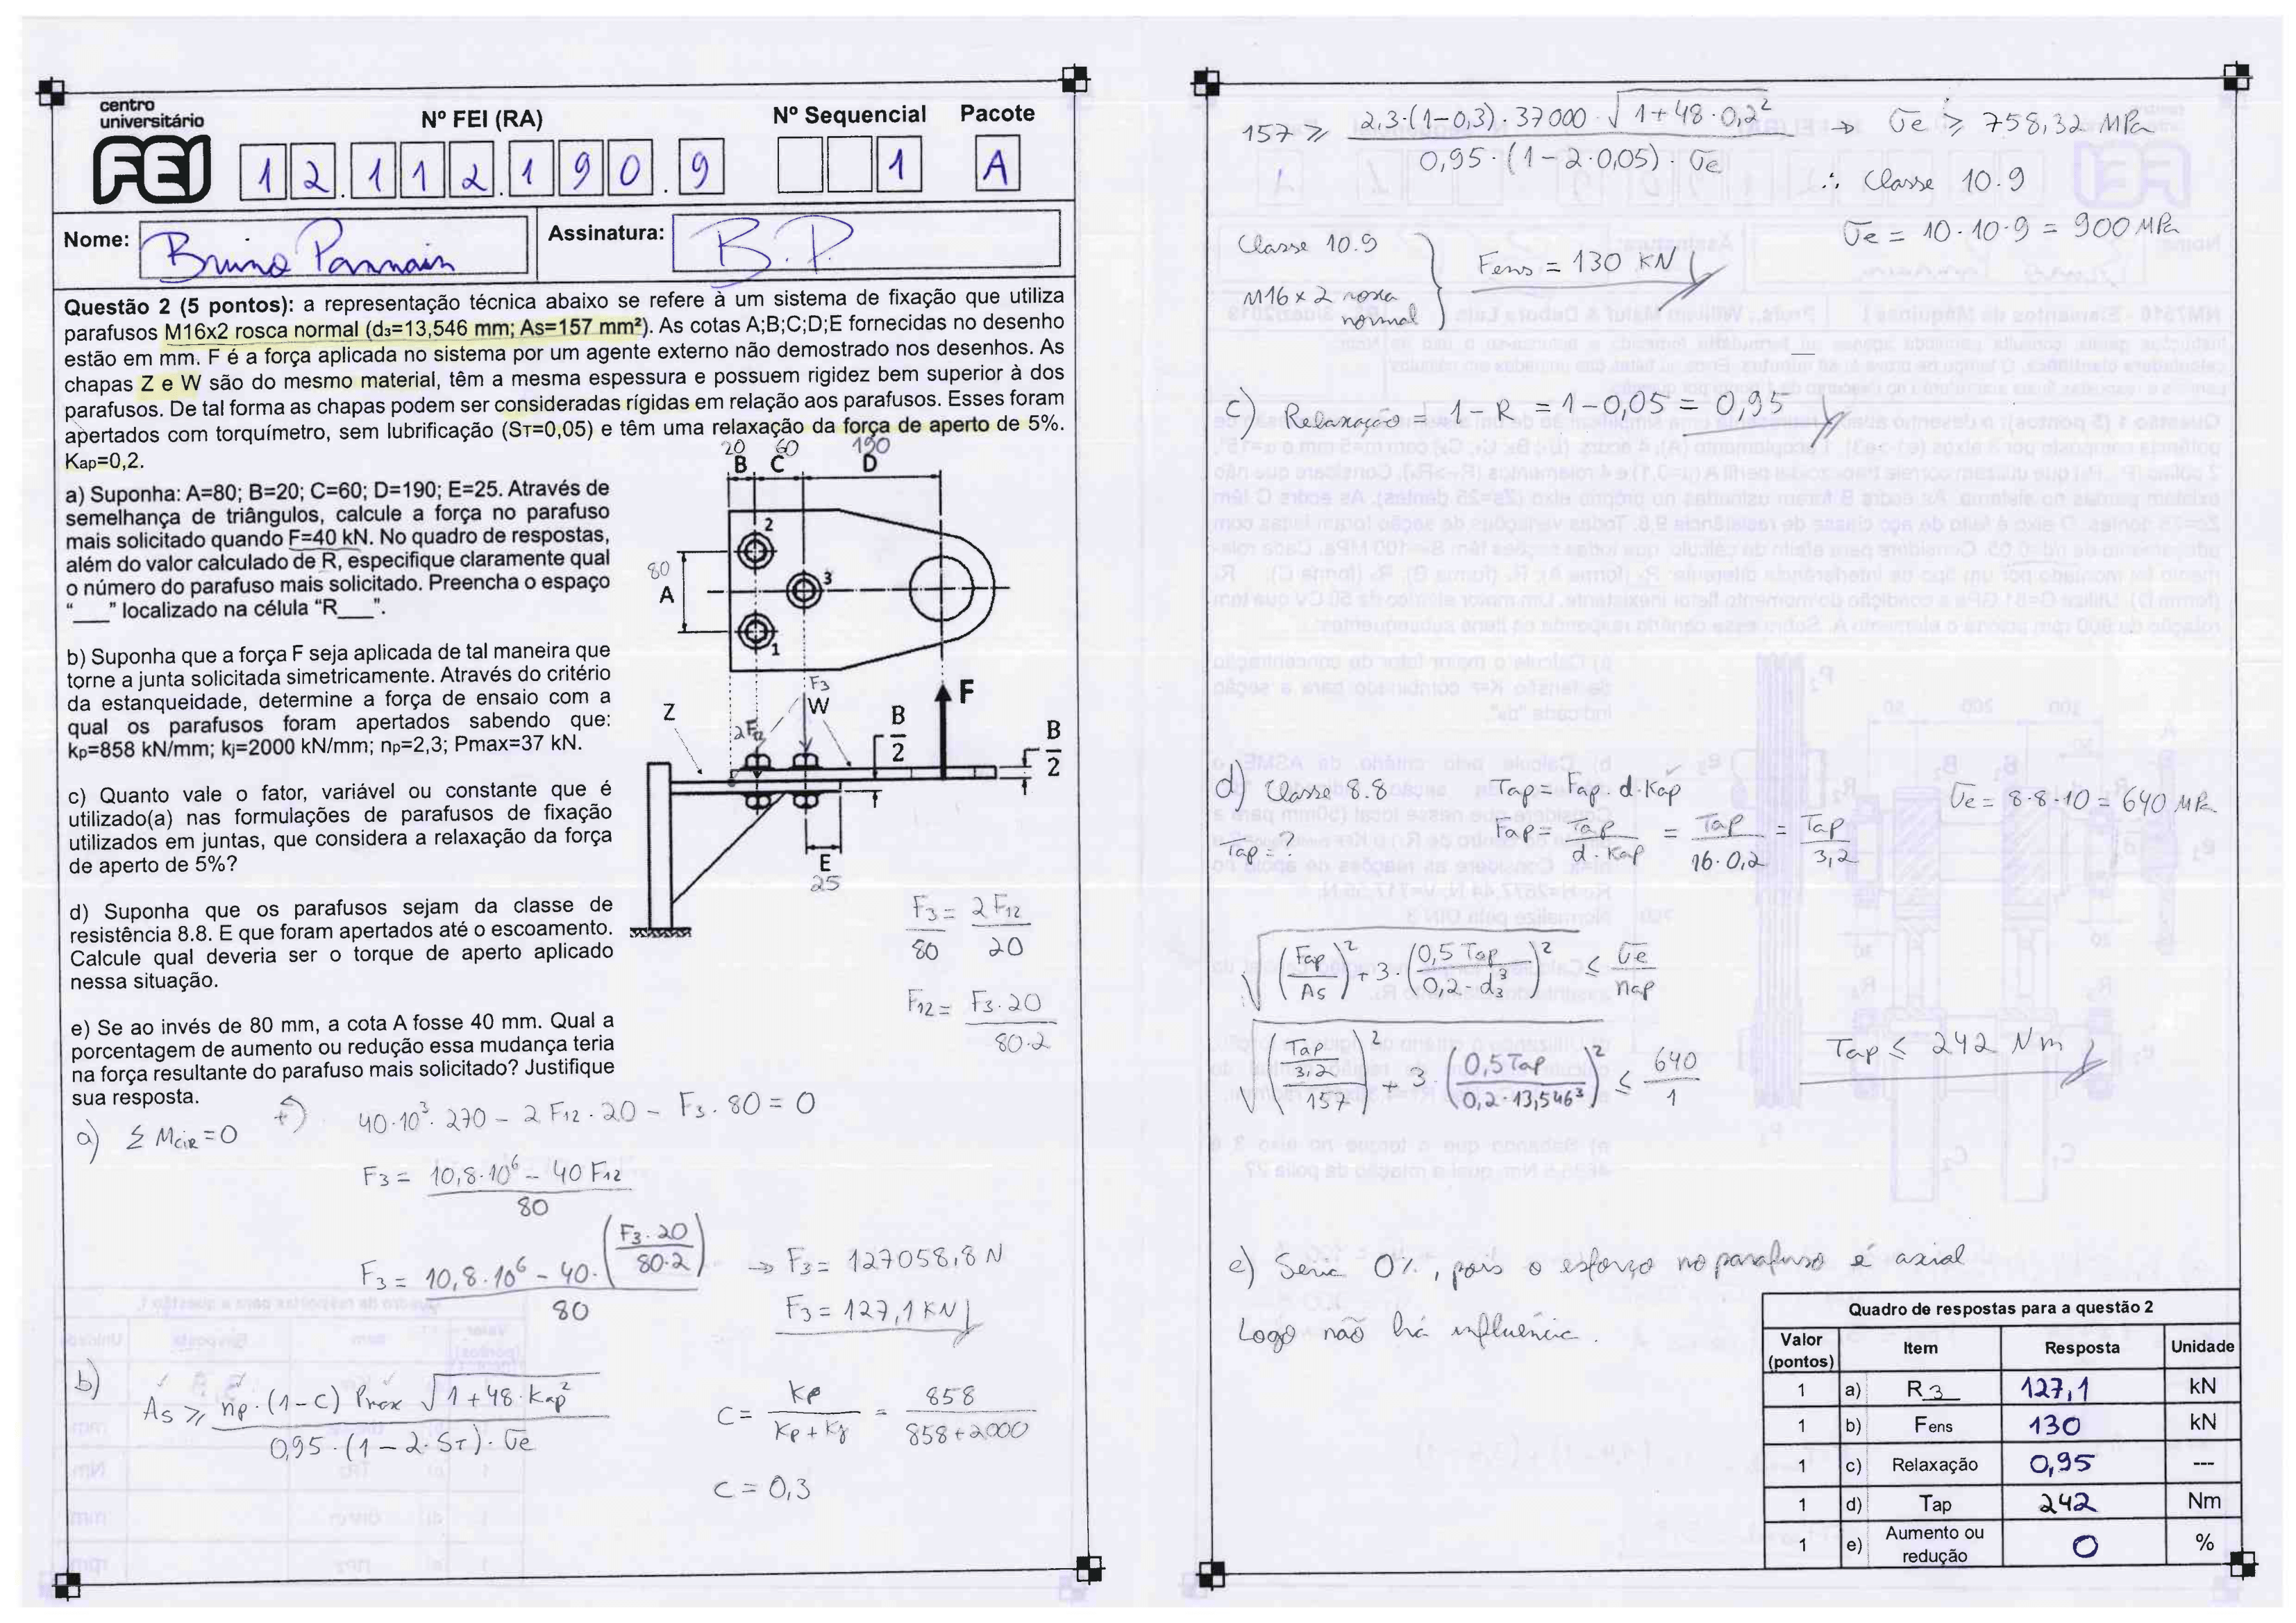 centro
universitário
FEI
Nº FEI (RA)
Nº Sequencial
Pacote
12.112.190.9
1
A
Nome:
Bruno Pannain
Assinatura:
B.P.
Questão 2 (5 pontos): a representação técnica abaixo se refere à um sistema de fixação que utiliza
parafusos M16x2 rosca normal (d₃=13,546 mm; As=157 mm²). As cotas A;B;C;D;E fornecidas no desenho
estão em mm. F é a força aplicada no sistema por um agente externo não demostrado nos desenhos. As
chapas Z e W são do mesmo material, têm a mesma espessura e possuem rigidez bem superior à dos
parafusos. De tal forma as chapas podem ser consideradas rígidas em relação aos parafusos. Esses foram
apertados com torquímetro, sem lubrificação (Sᴛ=0,05) e têm uma relaxação da força de aperto de 5%.
Kap=0,2.
a) Suponha: A=80; B=20; C=60; D=190; E=25. Através de
semelhança de triângulos, calcule a força no parafuso
mais solicitado quando F=40 kN. No quadro de respostas,
além do valor calculado de R, especifique claramente qual
o número do parafuso mais solicitado. Preencha o espaço
"___" localizado na célula "R___".
b) Suponha que a força F seja aplicada de tal maneira que
torne a junta solicitada simetricamente. Através do critério
da estanqueidade, determine a força de ensaio com a
qual os parafusos foram apertados sabendo que:
kp=858 kN/mm; kj=2000 kN/mm; np=2,3; Pmax=37 kN.
c) Quanto vale o fator, variável ou constante que é
utilizado(a) nas formulações de parafusos de fixação
utilizados em juntas, que considera a relaxação da força
de aperto de 5%?
d) Suponha que os parafusos sejam da classe de
resistência 8.8. E que foram apertados até o escoamento.
Calcule qual deveria ser o torque de aperto aplicado
nessa situação.
e) Se ao invés de 80 mm, a cota A fosse 40 mm. Qual a
porcentagem de aumento ou redução essa mudança teria
na força resultante do parafuso mais solicitado? Justifique
sua resposta.
20 60 190
B C D
2
80
A
3
1
F3
Z
2F12
W
B/2
F
B/2
E
25
F3/80 = 2F12/20
F12 = F3·20/80·2
a) Σ Mcir = 0
+
40·10³·270 − 2F12·20 − F3·80 = 0
F3 = 10,8·10⁶ − 40F12 / 80
F3 = 10,8·10⁶ − 40·(F3·20/80·2) / 80 → F3 = 127058,8 N
F3 = 127,1 KN
b) As ≥ np·(1−C) Pmax √1+48·Kap² / 0,95·(1−2·ST)·σe
C = Kp/Kp+Kj = 858/858+2000
C = 0,3
157 ≥ 2,3·(1−0,3)·37000·√1+48·0,2² / 0,95·(1−2·0,05)·σe → σe ≥ 758,32 MPa
∴ Classe 10.9
σe = 10·10·9 = 900 MPa
Classe 10.9
M16×2 rosca
normal
} Fens = 130 KN
c) Relaxação = 1−R = 1−0,05 = 0,95
d) Classe 8.8
Tap = Fap·d·Kap
σe = 8·8·10 = 640 MPa
Tap = ?
Fap = Tap/d·Kap = Tap/16·0,2 = Tap/3,2
√(Fap/As)² + 3·(0,5 Tap/0,2·d3³)² ≤ σe/nap
√(Tap/3,2/157)² + 3·(0,5Tap/0,2·13,546³)² ≤ 640/1
Tap ≤ 242 Nm
e) Seria 0%, pois o esforço no parafuso é axial
Logo não há influência.
Quadro de respostas para a questão 2
Valor (pontos) Item Resposta Unidade
1 a) R 3 127,1 kN
1 b) Fens 130 kN
1 c) Relaxação 0,95 ---
1 d) Tap 242 Nm
1 e) Aumento ou redução 0 %